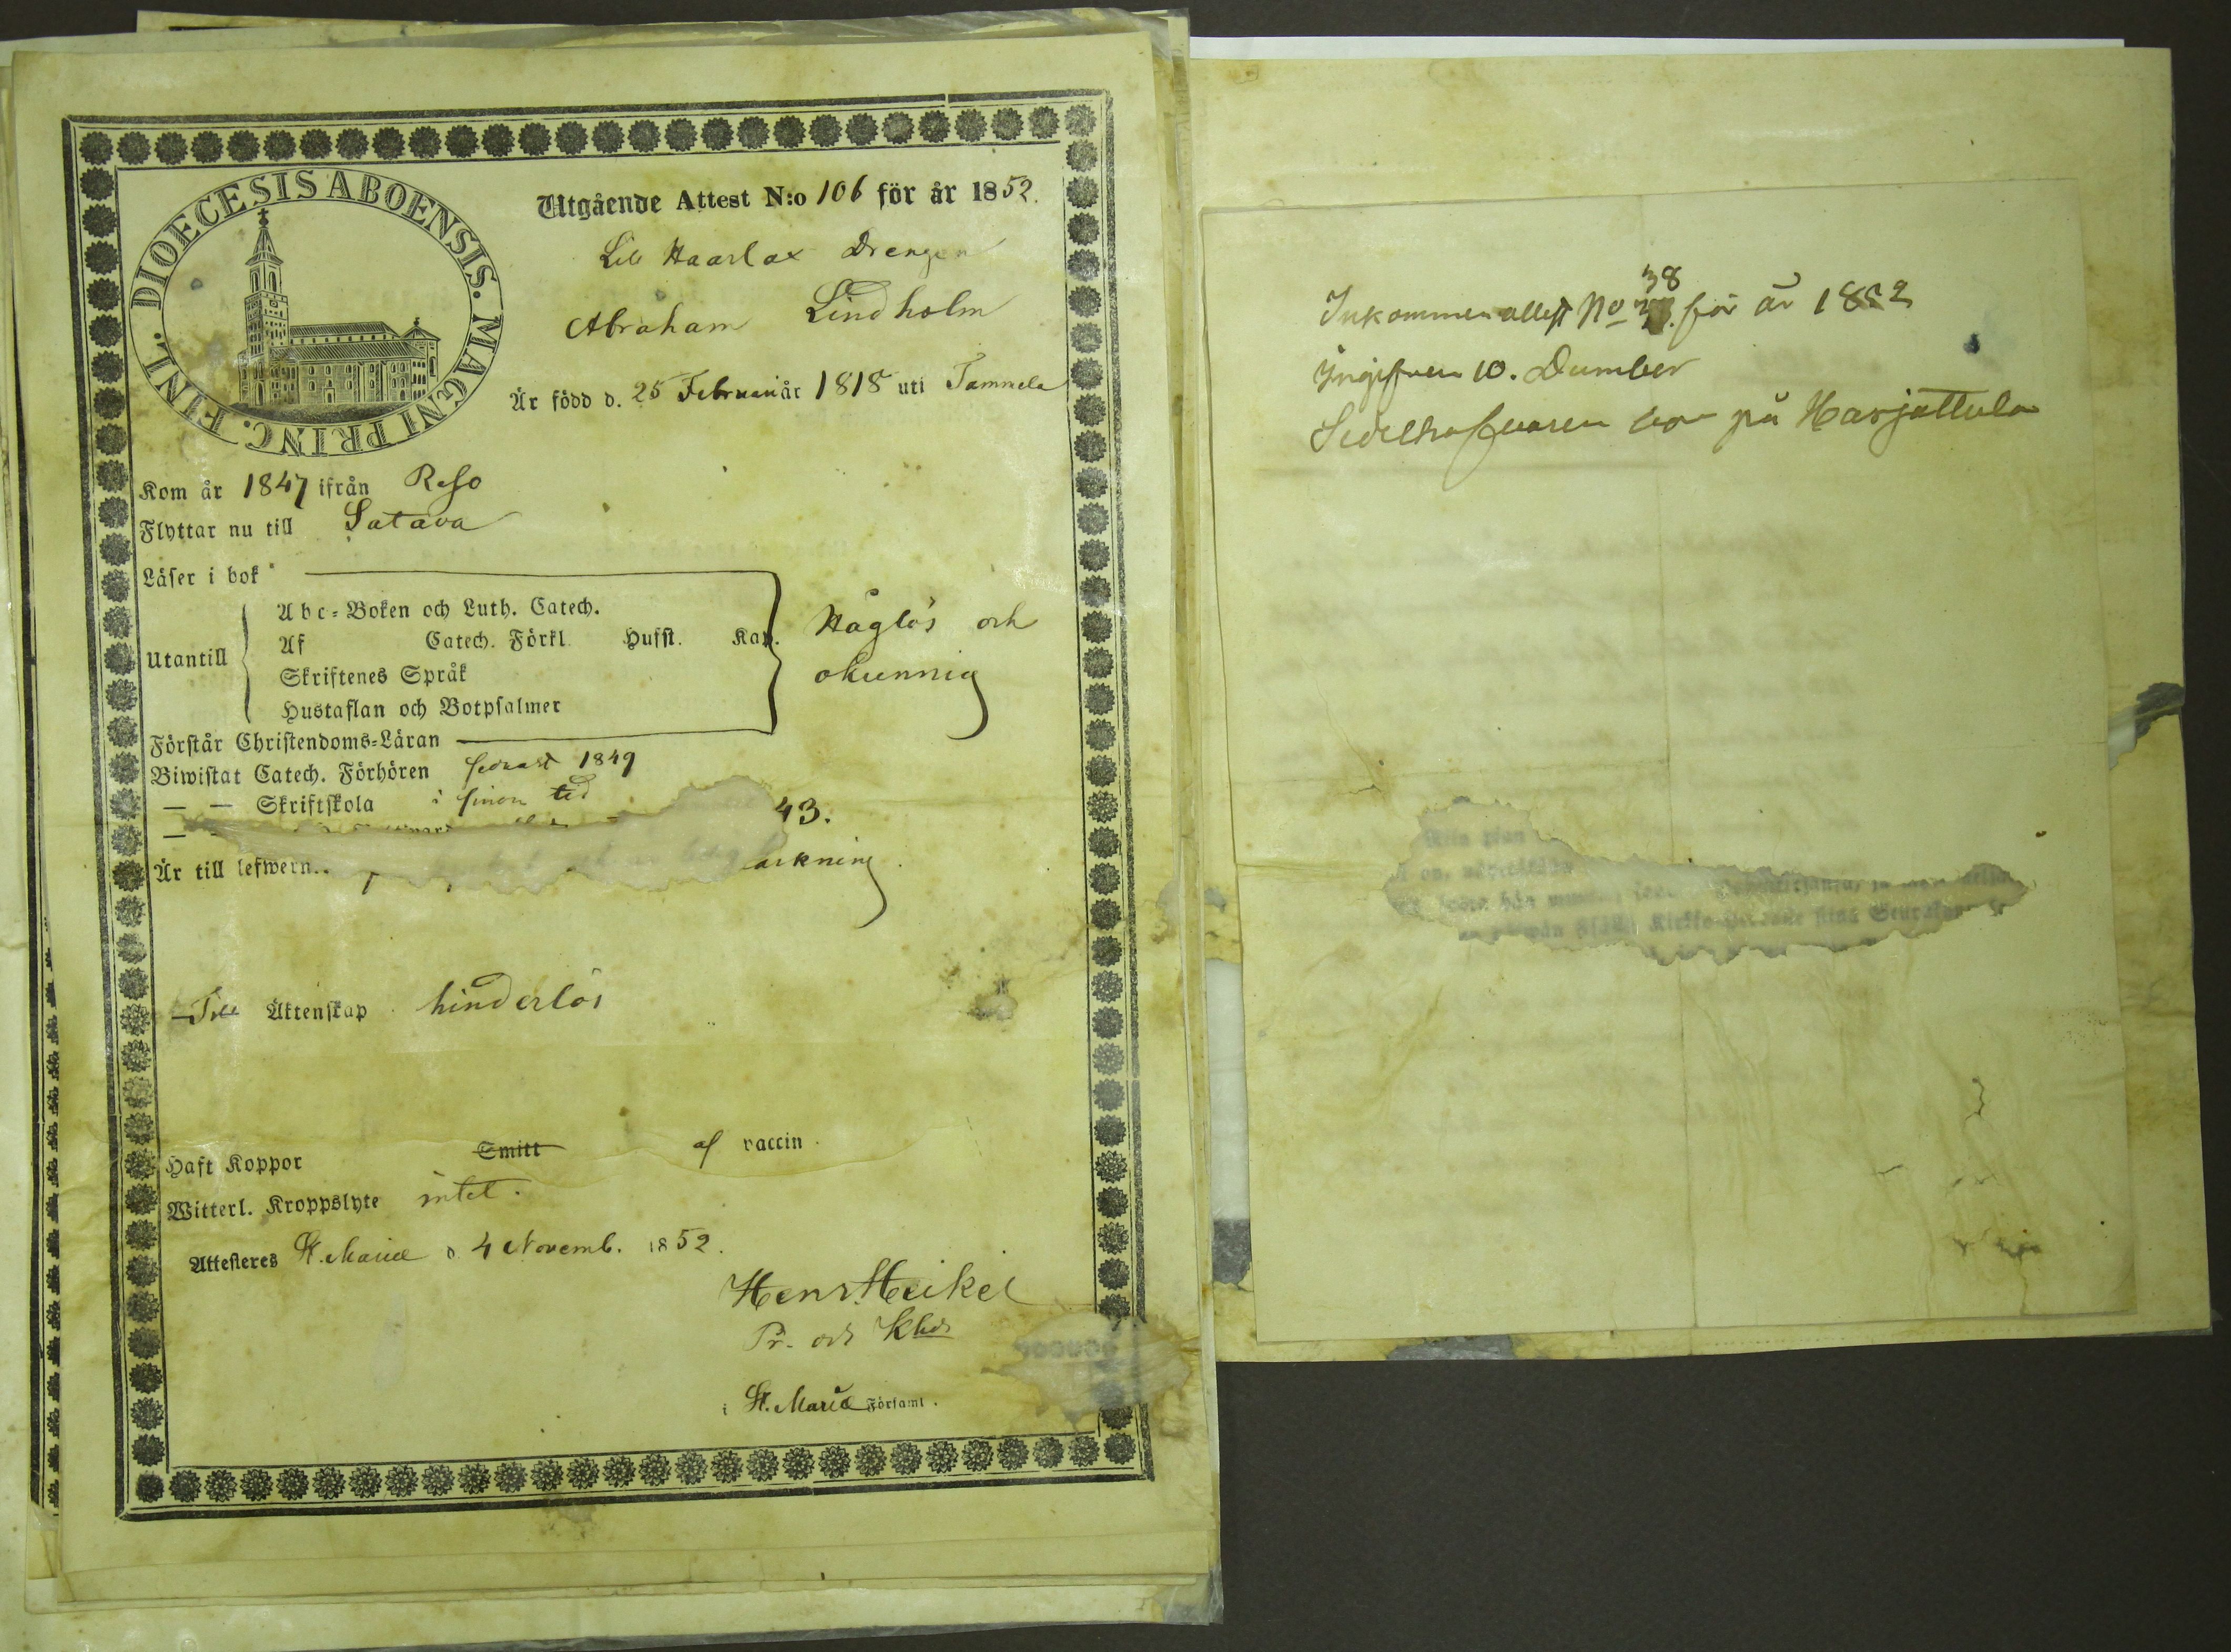 DIOECESIS ABOENSIS. MAGNI PRINC. FINL.
Utgående Attest N:o 106 för år 1852.
Lill Haarlax Drengen
Abraham Lindholm
Är född d. 25 Februari år 1818 uti Tammela
Kom år 1847 ifrån Reso
Flyttar nu till Satava
Läser i bok
Abc-Boken och Luth. Catech.
Af Catech. Förkl. Husst. Kap.
Utantill
Skriftenes Språk
Hustaflan och Botpsalmer
Håglös och
okunnig
Förstår Christendoms-Läran
Biwistat Catech. Förhören sednast 1849
— — Skriftskola i sinom tid
— 43.
Är till lefwern
arkning
Till Äktenskap hinderlös
Haft Koppor Smitt af vaccin.
Witterl. Kroppslyte intet.
Attesteres St. Mariæ d. 4 Novemb. 1852.
Henr. Heikel
Pr. och Khde
i St. Mariæ Församl.
Inkommen attest No 38 för år 1852
Ingifven 10. December
Sedelhafvaren bor på Harjattula